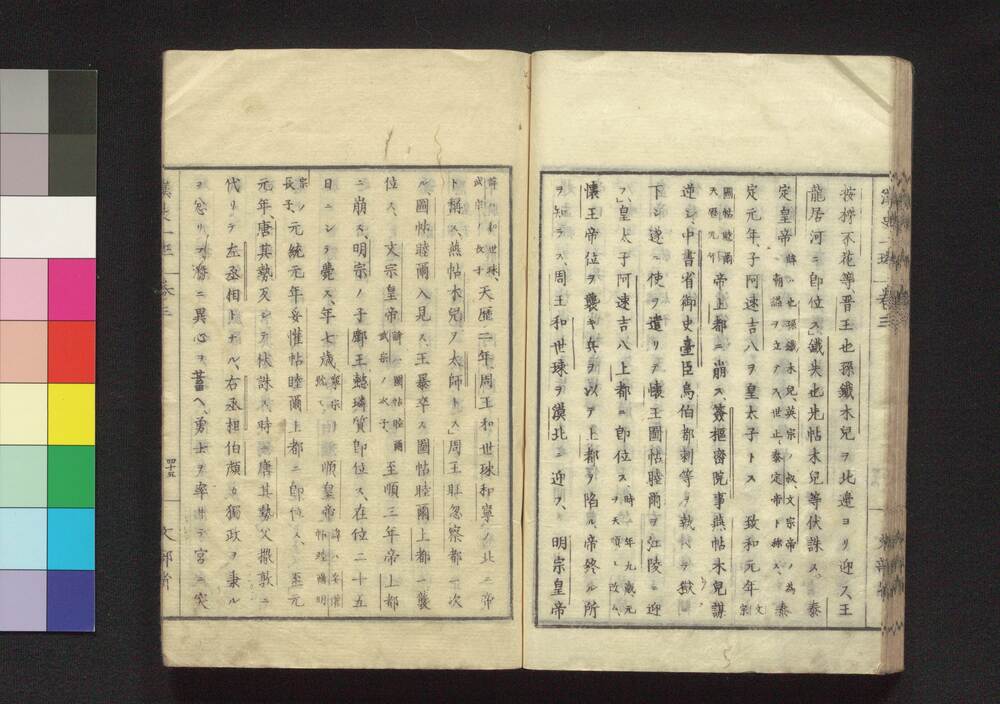 按梈不花等晋王也孫鐵木兒ヲ北邊ヨリ迎ス王
龍居河ニ即位ス鐵失也先帖木兒等伏誅ス、泰
定皇帝
定元年子阿速吉八ヲ皇太子トス 致和元年
帝上都ニ崩ス、簽樞密院事燕帖木兒謀
逆シ、中書省御史臺臣烏伯都刺等ヲ執ヘテ獄ニ
下シ、遂ニ使ヲ遣リテ懐王圖帖睦爾ヲ江陵ニ迎
フ、皇太子阿速吉八上都ニ即位ス、時年九歳元ヲ天順ト改ム、
懐王帝位ヲ襲キ兵ヲ以テ上都ヲ陷ル、帝終ル所
ヲ知ラス、周王和世㻋ヲ漠北ニ迎ス、 明宗皇帝
武宗ノ長子 天曆二年、周王和世㻋和寧ノ北ニ帝
ト稱ス、燕帖木兒ヲ太師トス、周王旺忽察都ニ次
ル、圖帖睦爾入見ス、王暴卒ス圖帖睦爾上都ニ襲
位ス、 文宗皇帝 諱ハ圖帖睦爾武宗ノ次子、 至順三年帝上都
ニ崩ス、明宗ノ子鄜王懿璘質即位ス、在位二十五
日ニシテ薨ス、年七歳 順皇帝
長子、元統元年妥懽帖睦爾上都ニ即位ス、 至元
元年、唐其勢反シテ伏誅ス、時ニ唐其勢父撒敦ニ
代リテ左丞相トナル、右丞相伯顔カ獨政ヲ秉ル
ヲ忿リテ、潛ニ異心ヲ蓄ヘ、勇士ヲ率ヰテ宮ニ突
卷三
四十五
文部省